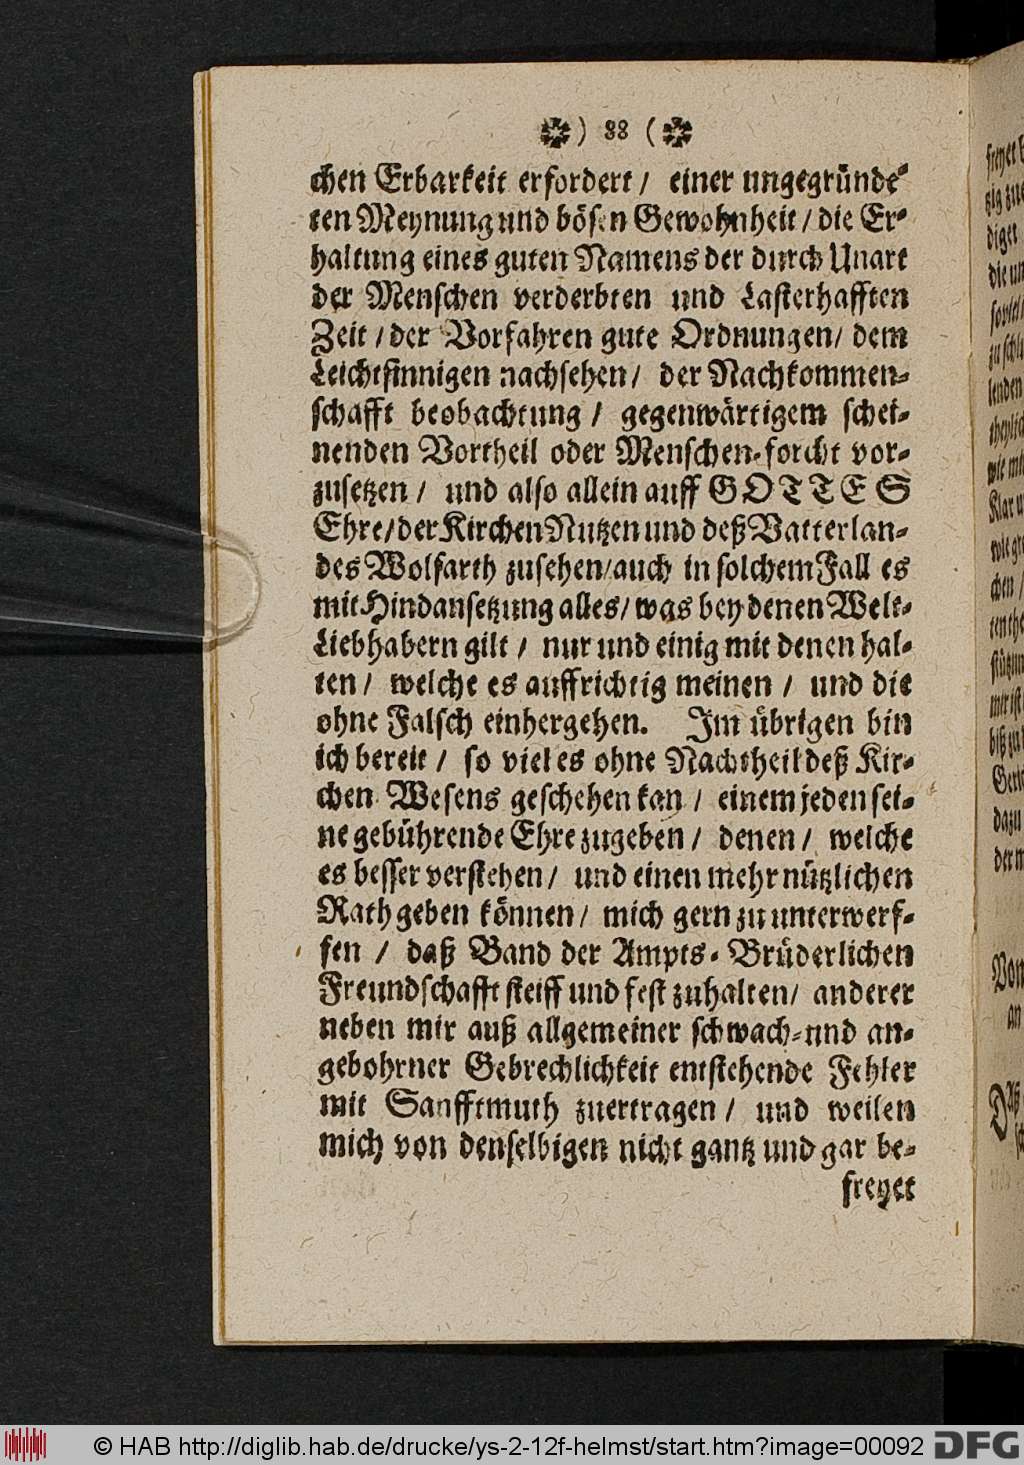 ) 88 (
chen Erbarkeit erfordert / einer ungegründe-
ten Meynung und bösen Gewohnheit / die Er-
haltung eines guten Namens der durch Unart
der Menschen verderbten und Lasterhafften
Zeit / der Vorfahren gute Ordnungen / dem
Leichtsinnigen nachsehen / der Nachkommen-
schafft beobachtung / gegenwärtigem schei-
nenden Vortheil oder Menschen-forcht vor-
zusetzen / und also allein auff GOTTES
Ehre / der Kirchen Nutzen und deß Vatterlan-
des Wolfarth zusehen / auch in solchem Fall es
mit Hindansetzung alles / was bey denen Welt-
Liebhabern gilt / nur und einig mit denen hal-
ten / welche es auffrichtig meinen / und die
ohne Falsch einhergehen. Im übrigen bin
ich bereit / so viel es ohne Nachtheil deß Kir-
chen Wesens geschehen kan / einem jeden sei-
ne gebührende Ehre zugeben / denen / welche
es besser verstehen / und einen mehr nützlichen
Rath geben können / mich gern zu unterwerf-
fen / daß Band der Ampts-Brüderlichen
Freundschafft steiff und fest zuhalten / anderer
neben mir auß allgemeiner schwach- und an-
gebohrner Gebrechlichkeit entstehende Fehler
mit Sanfftmuth zuertragen / und weilen
mich von denselbigen nicht gantz und gar be-
freyet
© HAB http://diglib.hab.de/drucke/ys-2-12f-helmst/start.htm?image=00092
DFG